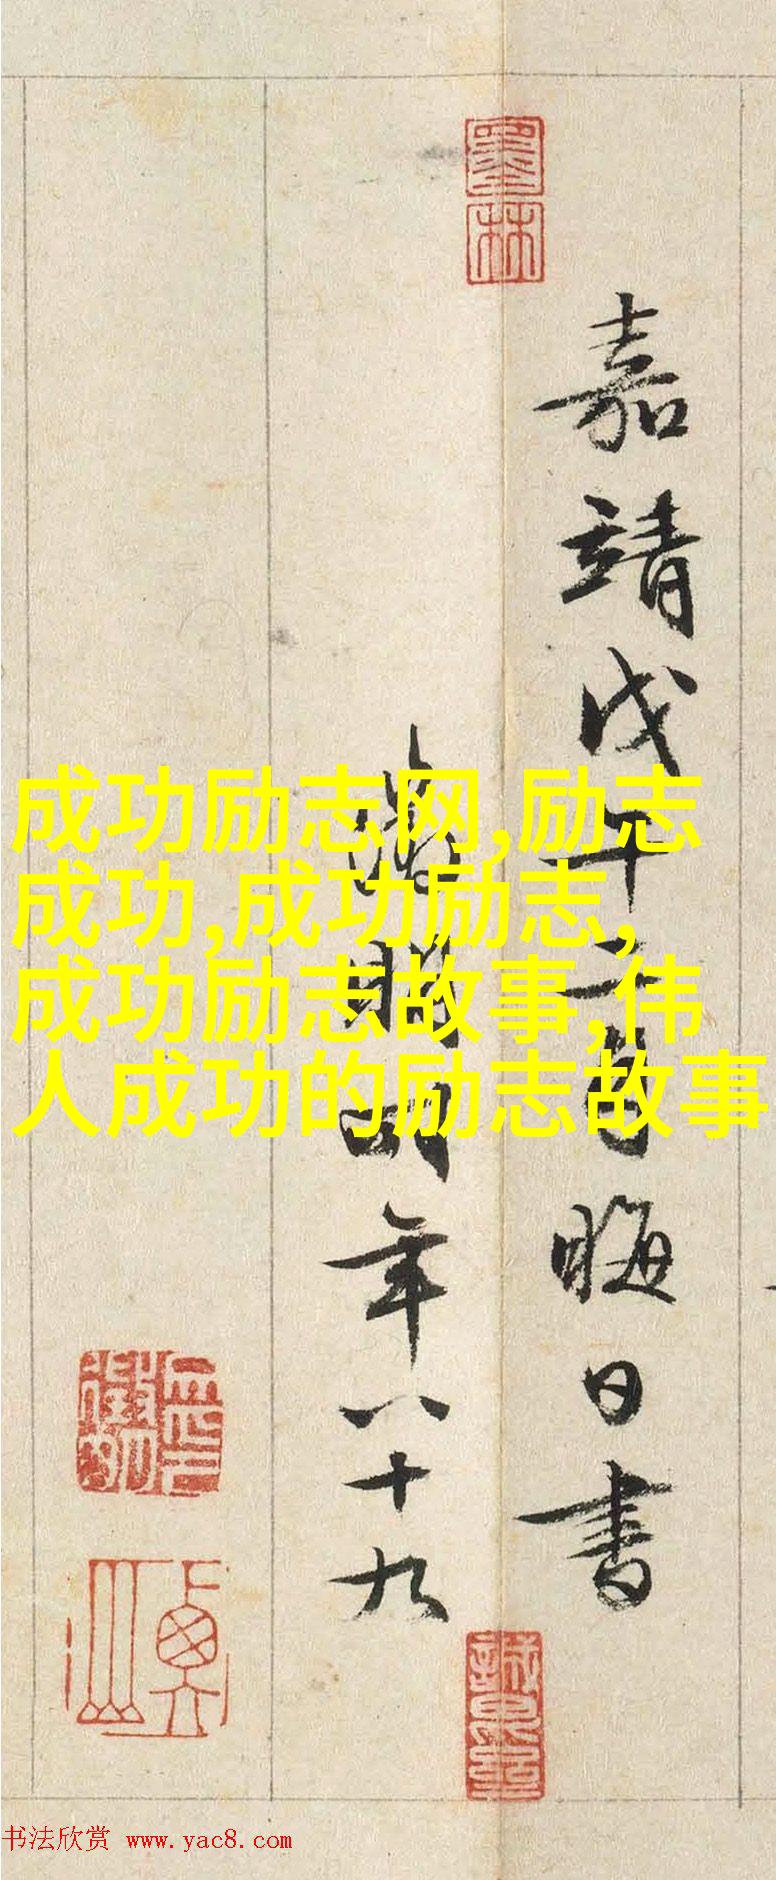 嘉靖戊午二月晦日书
徵明时年八十九
墨林
成功励志网,励志
成功,成功励志,
成功励志故事,伟
人成功的励志故事
书法欣赏 www.yac8.com